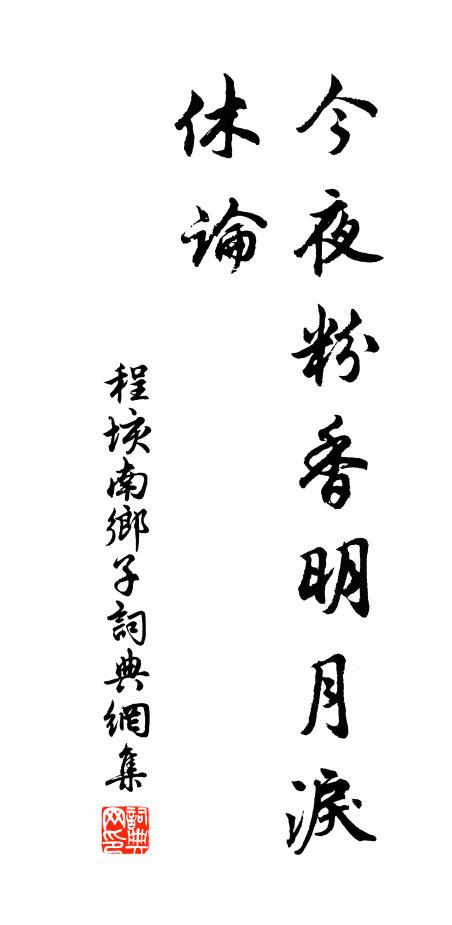 今夜粉香明月淚
休論
程垓南鄉子詞典網集
詞典网印